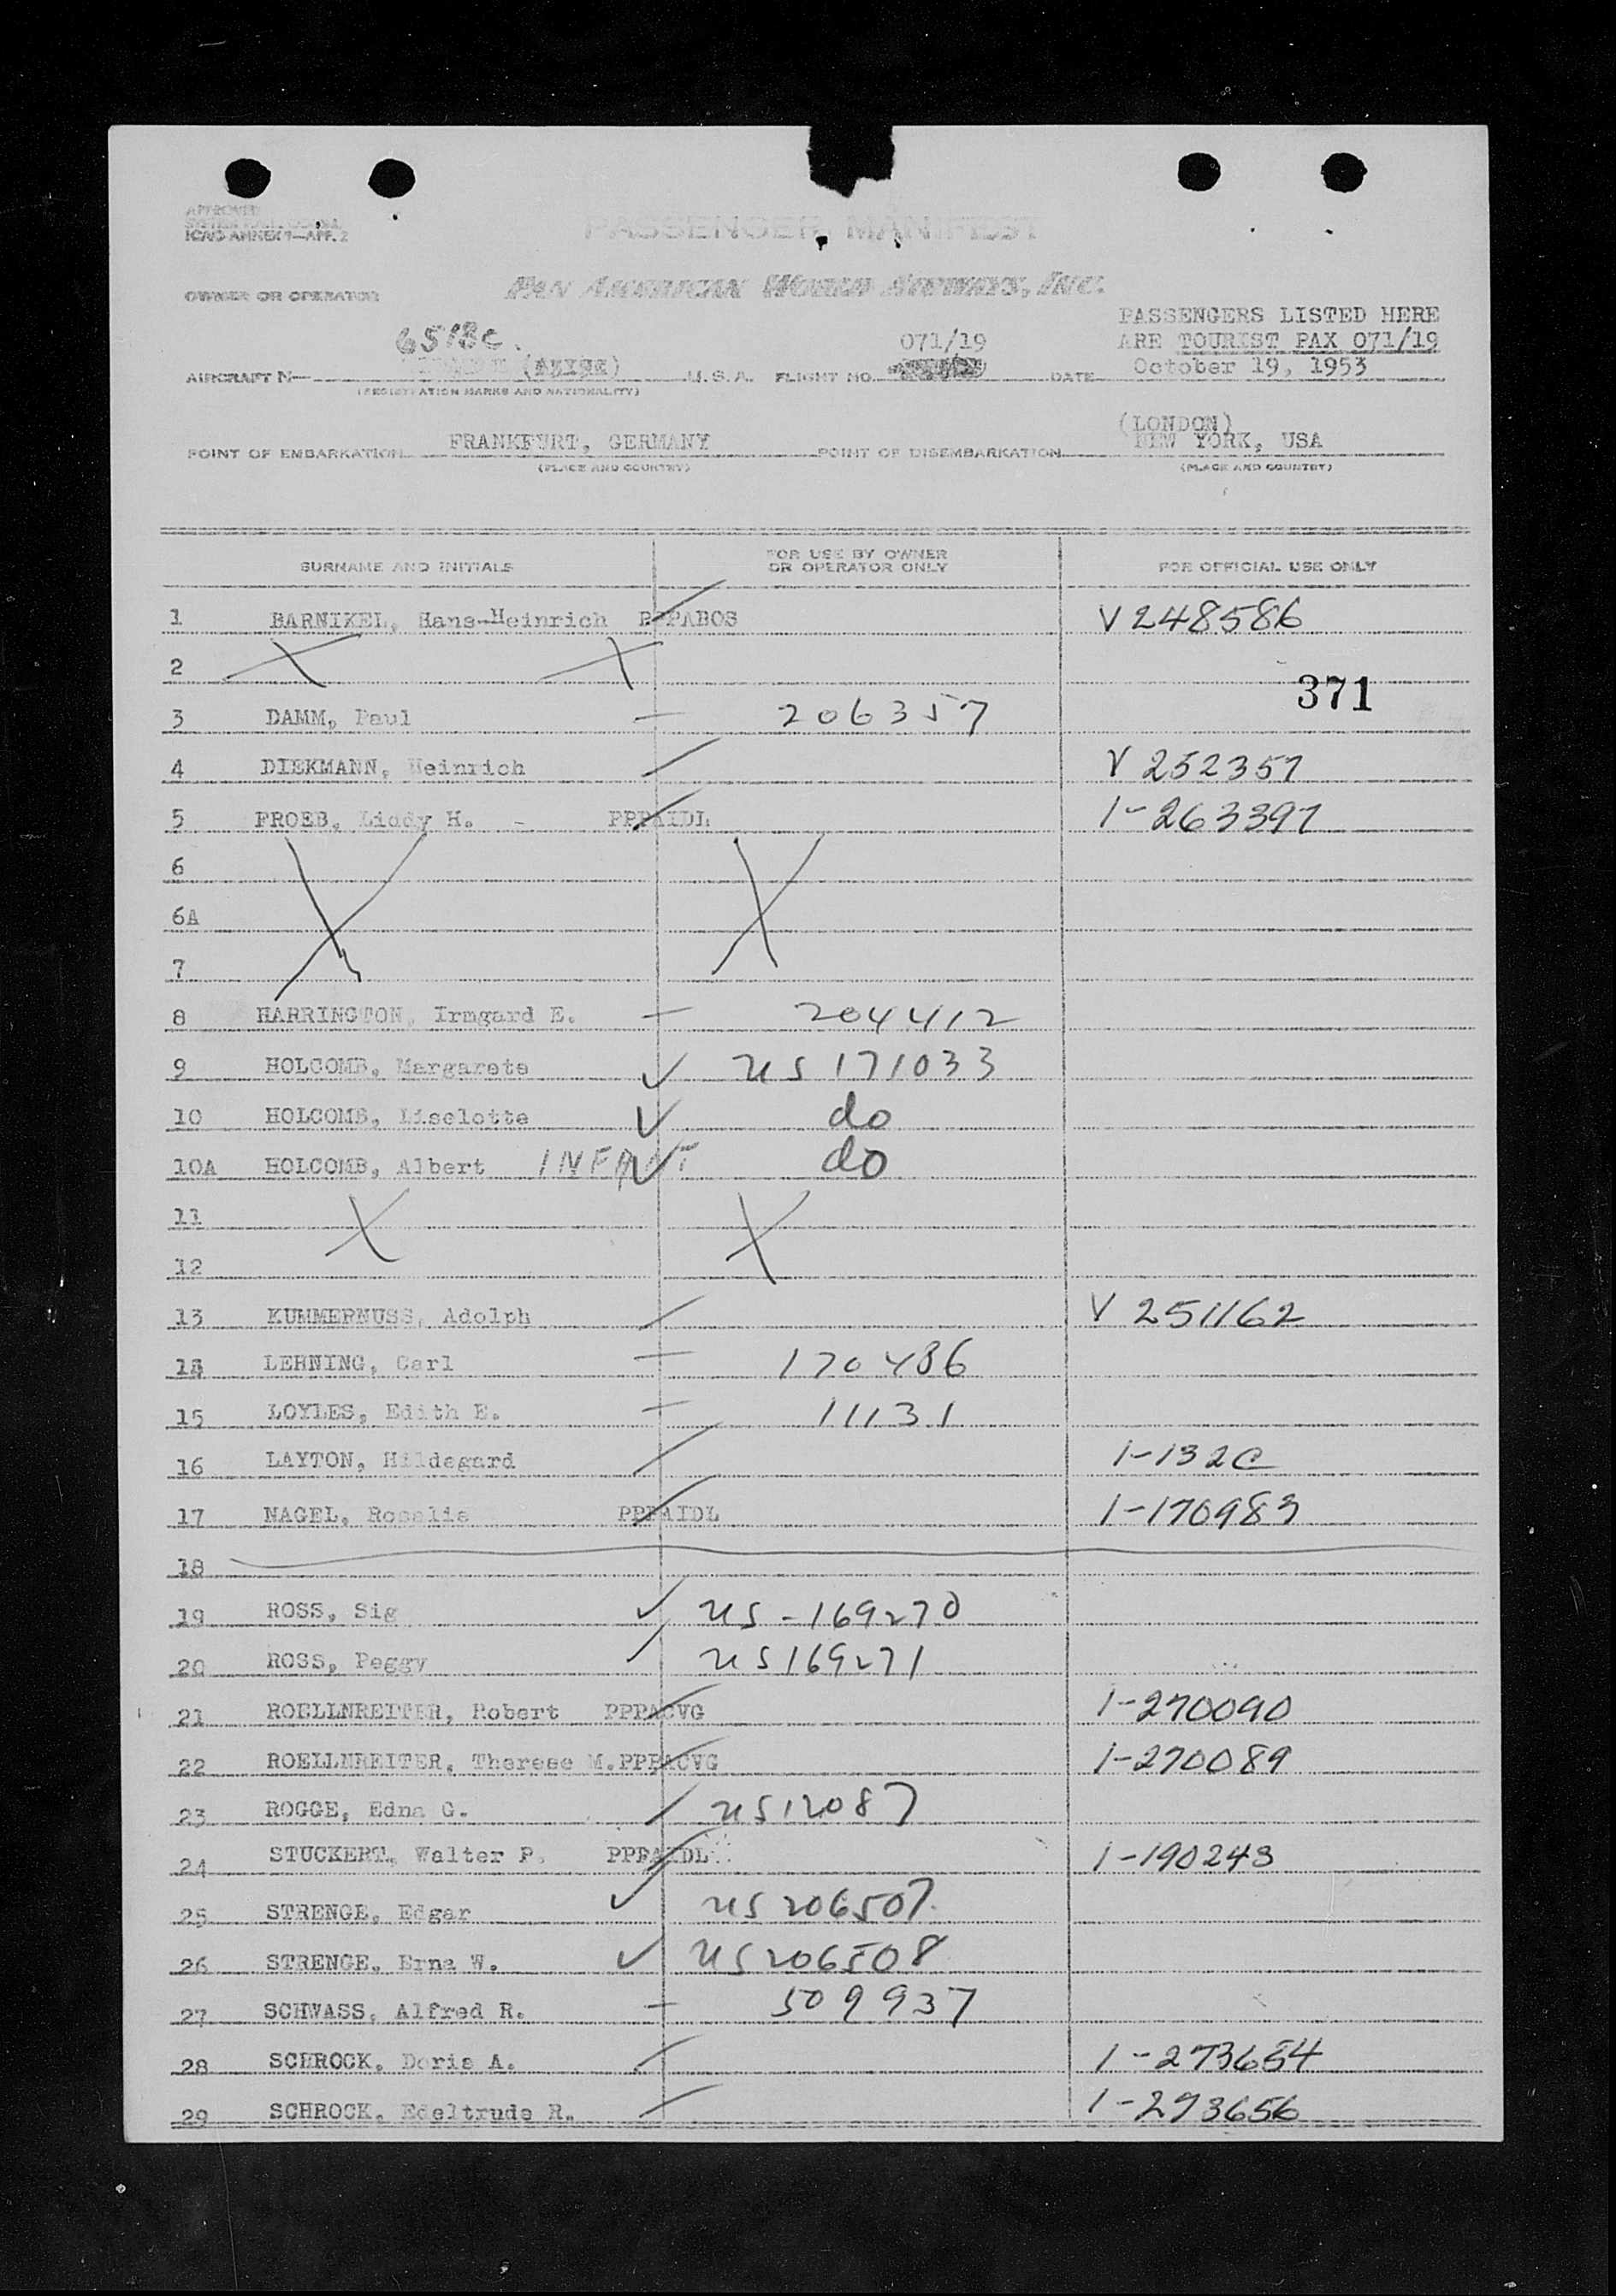 APPROVED
ICAO ANNEX 9—APP. 2
PASSENGER MANIFEST
OWNER OR OPERATOR
PAN AMERICAN WORLD AIRWAYS, INC.
PASSENGERS LISTED HERE
ARE TOURIST PAX 071/19
6518C.
071/19
AIRCRAFT N— U. S. A. FLIGHT NO. DATE October 19, 1953
(REGISTRATION MARKS AND NATIONALITY)
(LONDON)
POINT OF EMBARKATION FRANKFURT, GERMANY POINT OF DISEMBARKATION NEW YORK, USA
(PLACE AND COUNTRY) (PLACE AND COUNTRY)
SURNAME AND INITIALS FOR USE BY OWNER OR OPERATOR ONLY FOR OFFICIAL USE ONLY
1 BARNIKEL, Hans-Heinrich PPPABOS V 248586
2
371
3 DAMM, Paul — 206357
4 DIEKMANN, Heinrich V 252357
5 FROEB, Liddy H. - PPPAIDL 1-263397
6
6A
7
8 HARRINGTON, Irmgard E. — 204412
9 HOLCOMB, Margarete ✓ US 171033
10 HOLCOMB, Liselotte ✓ do
10A HOLCOMB, Albert INFANT ✓ do
11
12
13 KUMMERNUSS, Adolph V 251162
14 LEHNING, Carl — 170486
15 LOYLES, Edith E. — 11131
16 LAYTON, Hildegard 1-132C
17 NAGEL, Rosalie PPPAIDL 1-170983
18
19 ROSS, Sig ✓ US-169270
20 ROSS, Peggy US 169271
21 ROELLNREITER, Robert PPPACVG 1-270090
22 ROELLNREITER, Therese M. PPPACVG 1-270089
23 ROGGE, Edna G. US 12087
24 STUCKERT, Walter P. PPPAIDL 1-190243
25 STRENGE, Edgar ✓ US 206507
26 STRENGE, Erna W. ✓ US 206508
27 SCHWASS, Alfred R. — 509937
28 SCHROCK, Doris A. 1-273654
29 SCHROCK, Edeltrude R. 1-273656